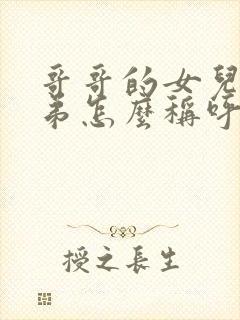 哥哥的女兒
弟怎麼稱呼
授之長生